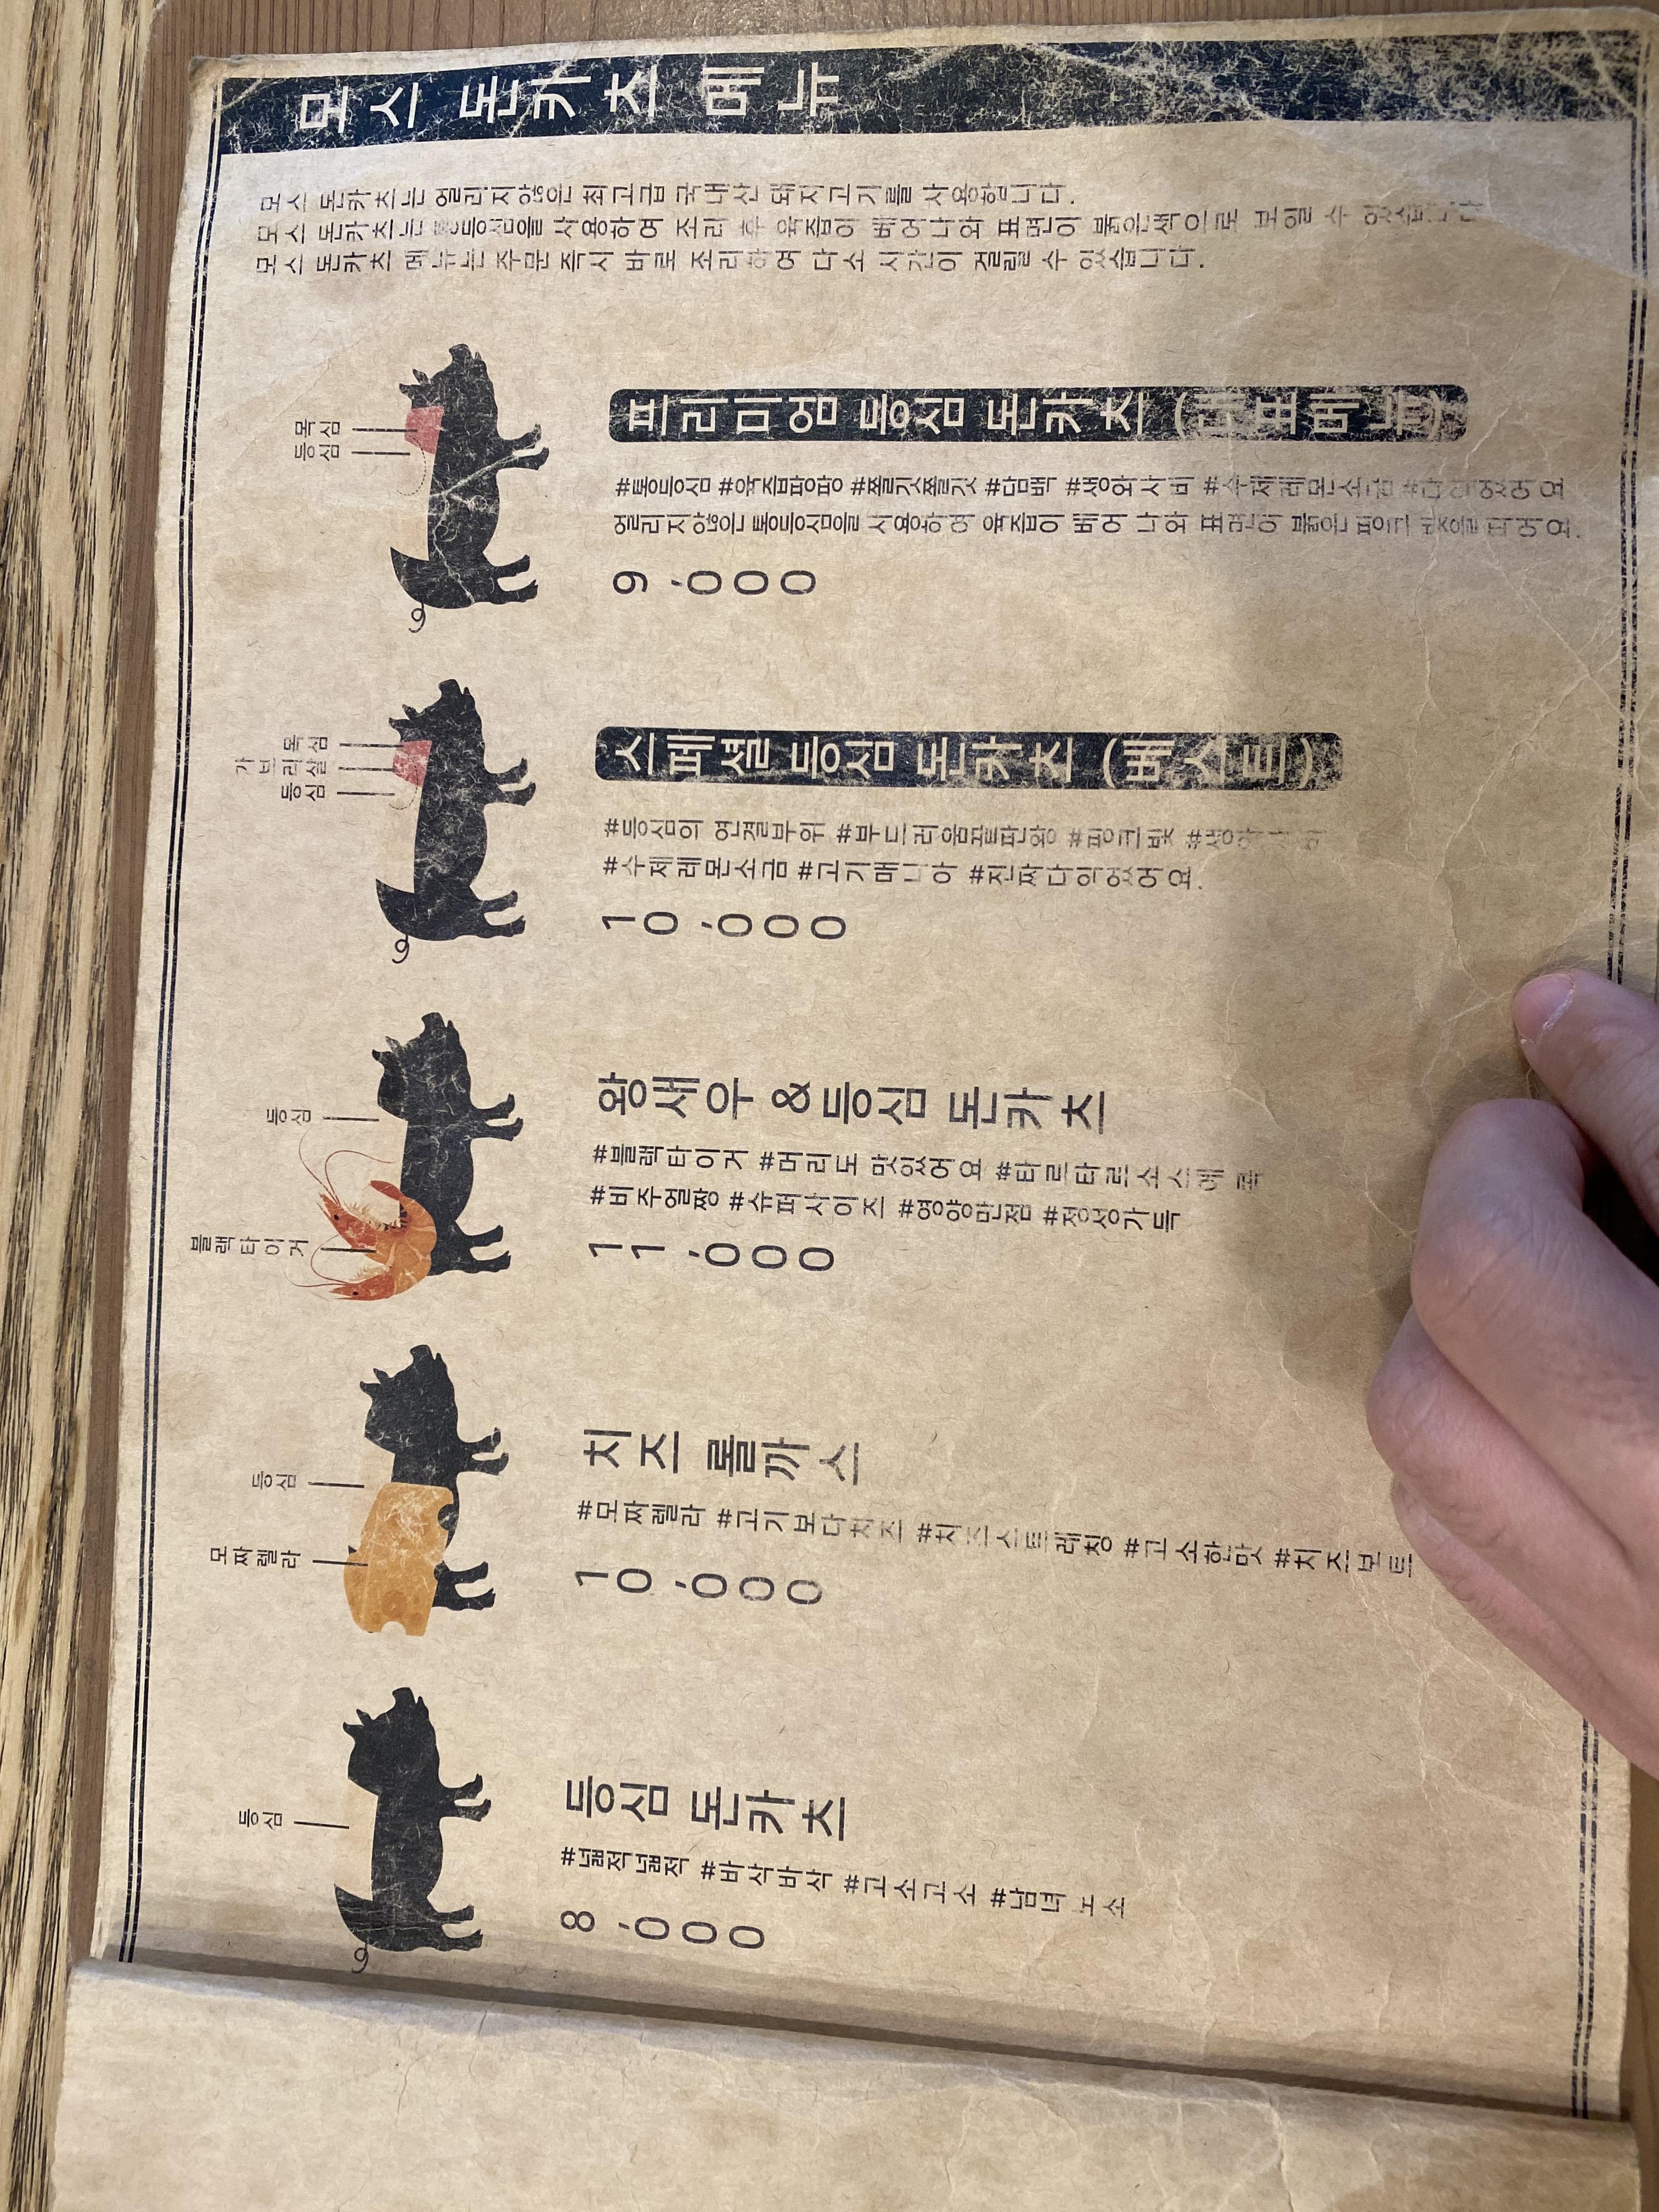 모스 돈카츠 메뉴
모스 돈카츠는 얼리지않은 최고급 국내산 돼지고기를 사용합니다.
모스 돈카츠는 통등심을 사용하여 조리 후 육즙이 베어나와 표면이 붉은색으로 보일 수 있습니다
모스 돈카츠 메뉴는 주문 즉시 바로 조리하여 다소 시간이 걸릴 수 있습니다.
목심
등심
프리미엄 등심 돈카츠 (대표메뉴)
#통등심 #육즙팡팡 #쫄깃쫄깃 #담백 #생와사비 #수제레몬소금 #다익었어요
얼리지않은 통등심을 사용하여 육즙이 베어 나와 표면이 붉은 핑크 빛을 띄어요.
9,000
목심
가브리살
등심
스페셜 등심 돈카츠 (베스트)
#등심의 연결부위 #부드러움끝판왕 #핑크빛 #생와사비
#수제레몬소금 #고기매니아 #진짜다익었어요.
10,000
등심
블랙타이거
왕새우&등심 돈카츠
#블랙타이거 #머리도 맛있어요 #타르타르소스에 콕
#비주얼짱 #슈퍼사이즈 #영양만점 #정성가득
11,000
등심
모짜렐라
치즈 롤까스
#모짜렐라 #고기보다치즈 #치즈스트레칭 #고소한맛 #치즈보트
10,000
등심
등심 돈카츠
#넓적넓적 #바삭바삭 #고소고소 #남녀노소
8,000